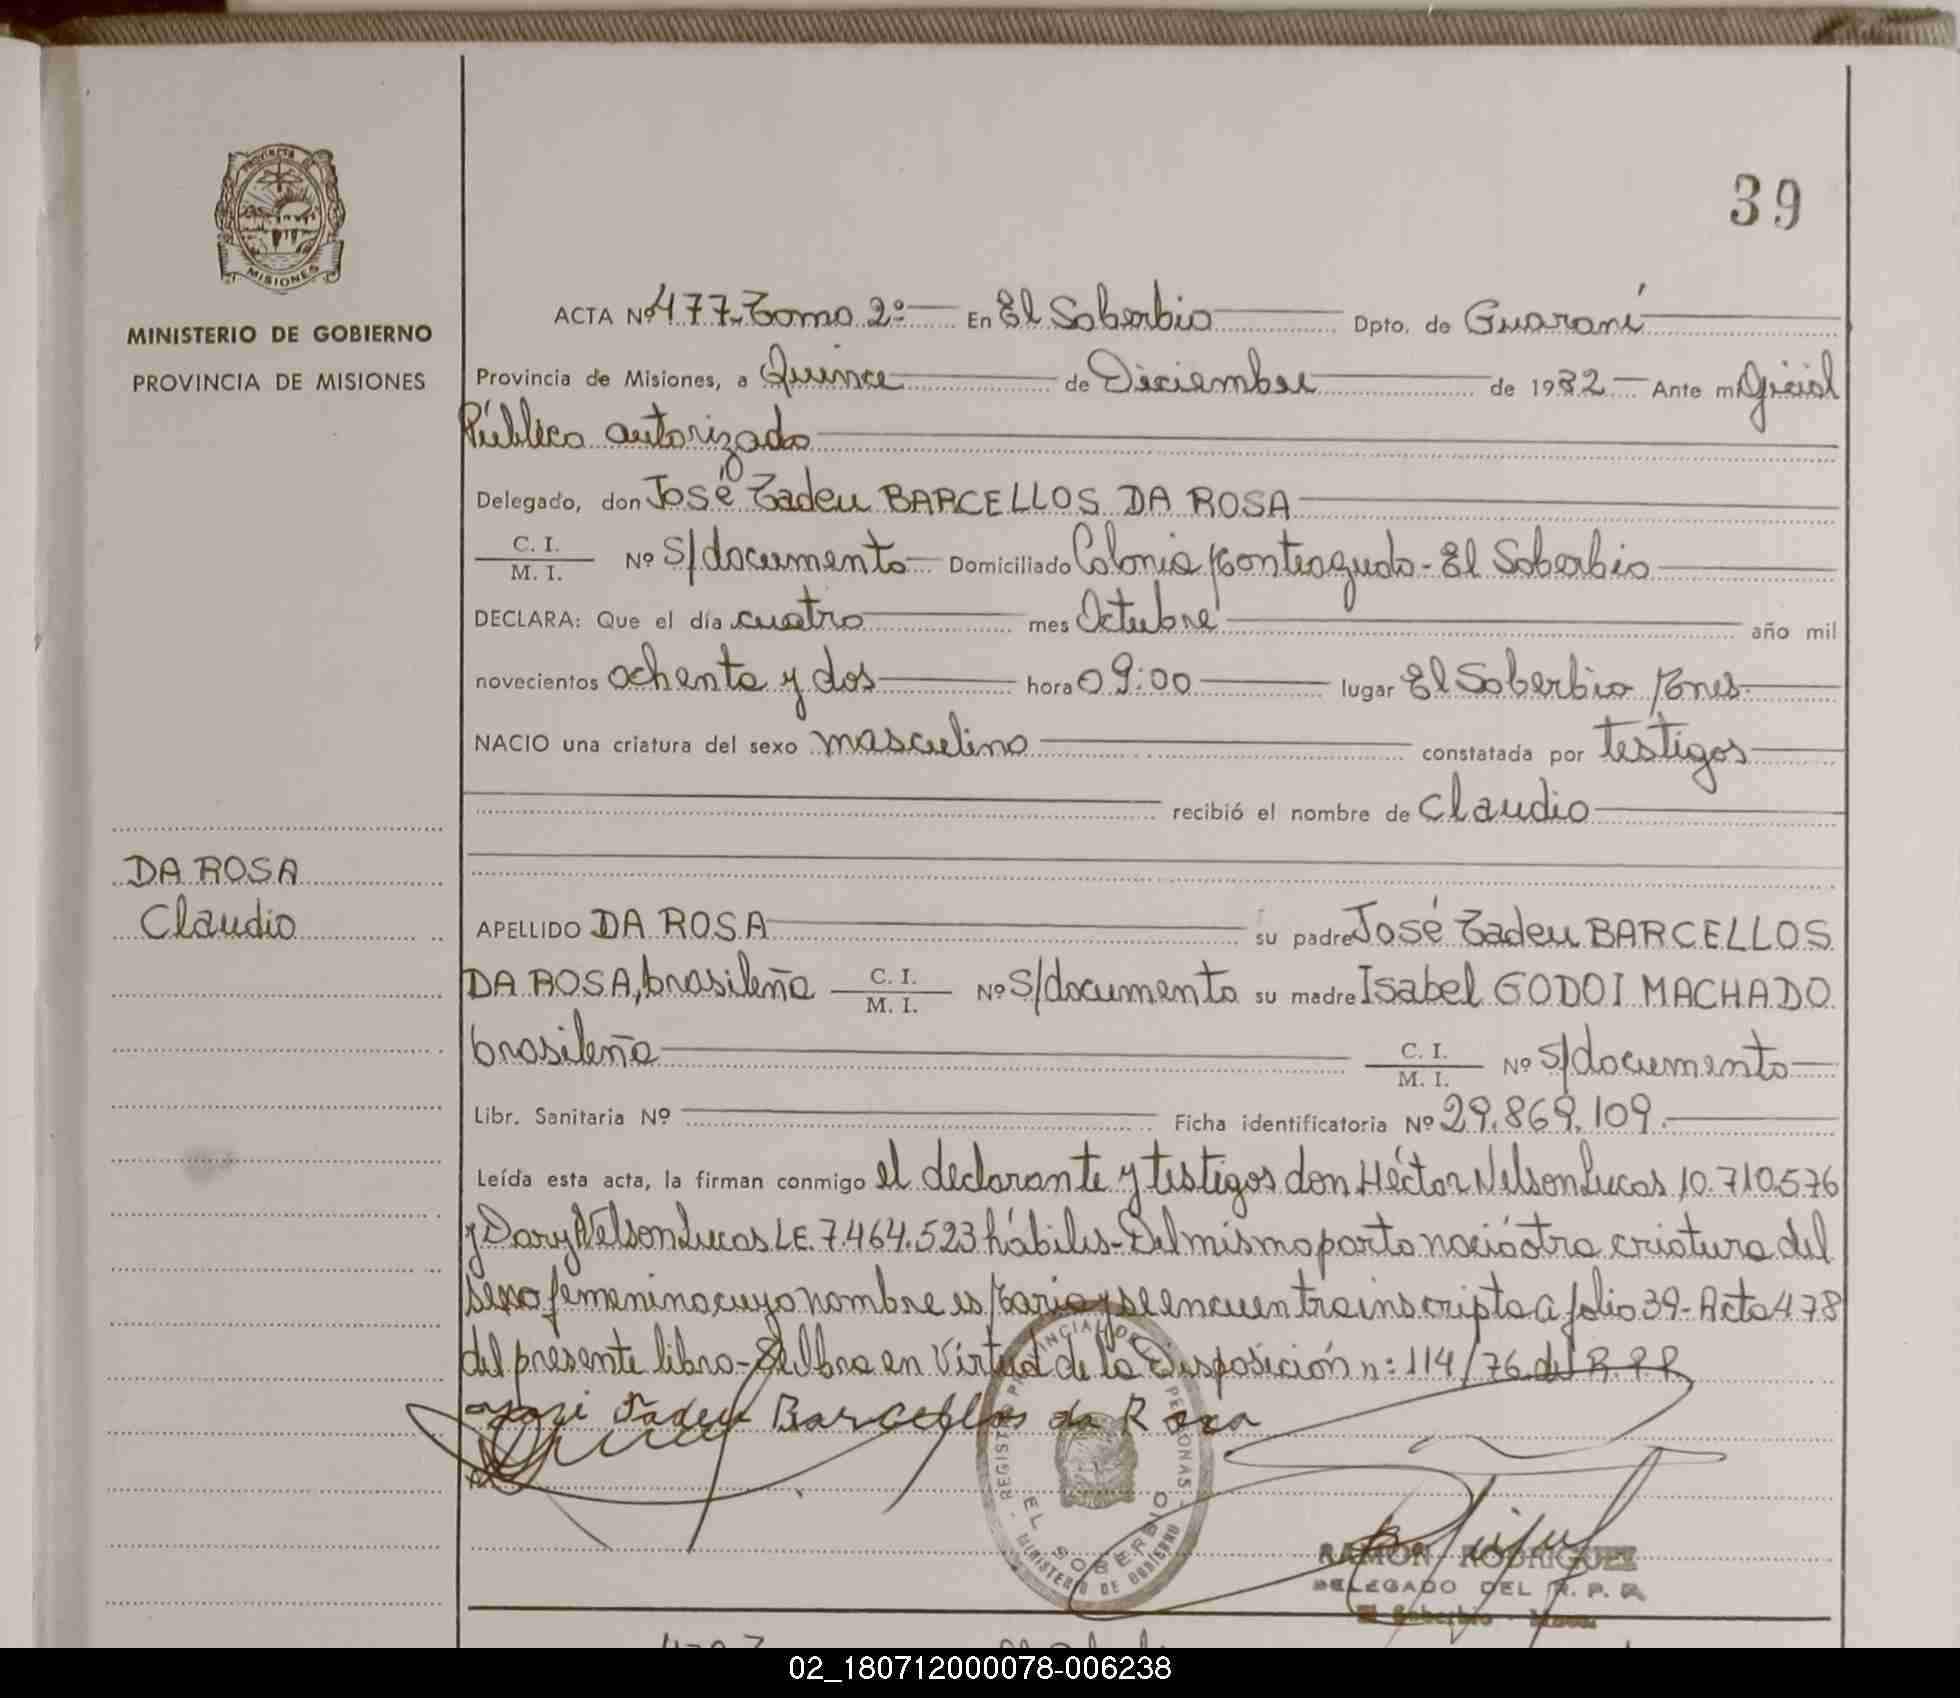 PROVINCIA DE
MISIONES
MINISTERIO DE GOBIERNO
PROVINCIA DE MISIONES
39
ACTA Nº 477-Tomo 2º En El Soberbio Dpto. de Guaraní
Provincia de Misiones, a Quince de Diciembre de 1982 Ante mi Oficial
Público autorizado
Delegado, don José Tadeu BARCELLOS DA ROSA
C. I.
M. I. Nº S/documento Domiciliado Colonia Monteagudo - El Soberbio
DECLARA: Que el día cuatro mes Octubre año mil
novecientos ochenta y dos hora 09:00 lugar El Soberbio Mnes.
NACIO una criatura del sexo masculino constatada por testigos
recibió el nombre de Claudio
DA ROSA
Claudio
APELLIDO DA ROSA su padre José Tadeu BARCELLOS
DA ROSA, brasileña C. I. M. I. Nº S/documento su madre Isabel GODOI MACHADO
brasileña C. I. M. I. Nº S/documento
Libr. Sanitaria Nº Ficha identificatoria Nº 29.869.109.
Leída esta acta, la firman conmigo el declarante y testigos don Héctor Nelson Lucas 10.710.576
y Dary Nelson Lucas LE. 7.464.523 hábiles - Del mismo parto nació otra criatura del
sexo femenino cuyo nombre es Maria y se encuentra inscripta a folio 39 - Acta 478
del presente libro - Se labra en Virtud de la Disposición n: 114/76 del R.P.P.
José Tadeu Barcellos da Rosa
REGISTRO PROVINCIAL DE PERSONAS
EL SOBERBIO
MINISTERIO DE GOBIERNO
RAMON RODRIGUEZ
DELEGADO DEL R. P. P.
El Soberbio - Mnes.
02_180712000078-006238